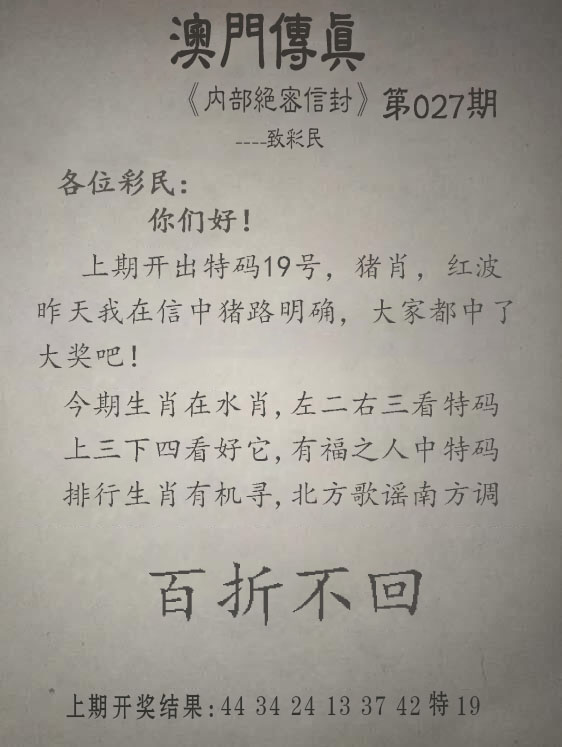 澳門傳眞
《内部絕密信封》第027期
----致彩民
各位彩民：
你们好！
上期开出特码19号，猪肖，红波
昨天我在信中猪路明确，大家都中了
大奖吧！
今期生肖在水肖,左二右三看特码
上三下四看好它,有福之人中特码
排行生肖有机寻,北方歌谣南方调
百折不回
上期开奖结果:44 34 24 13 37 42 特 19